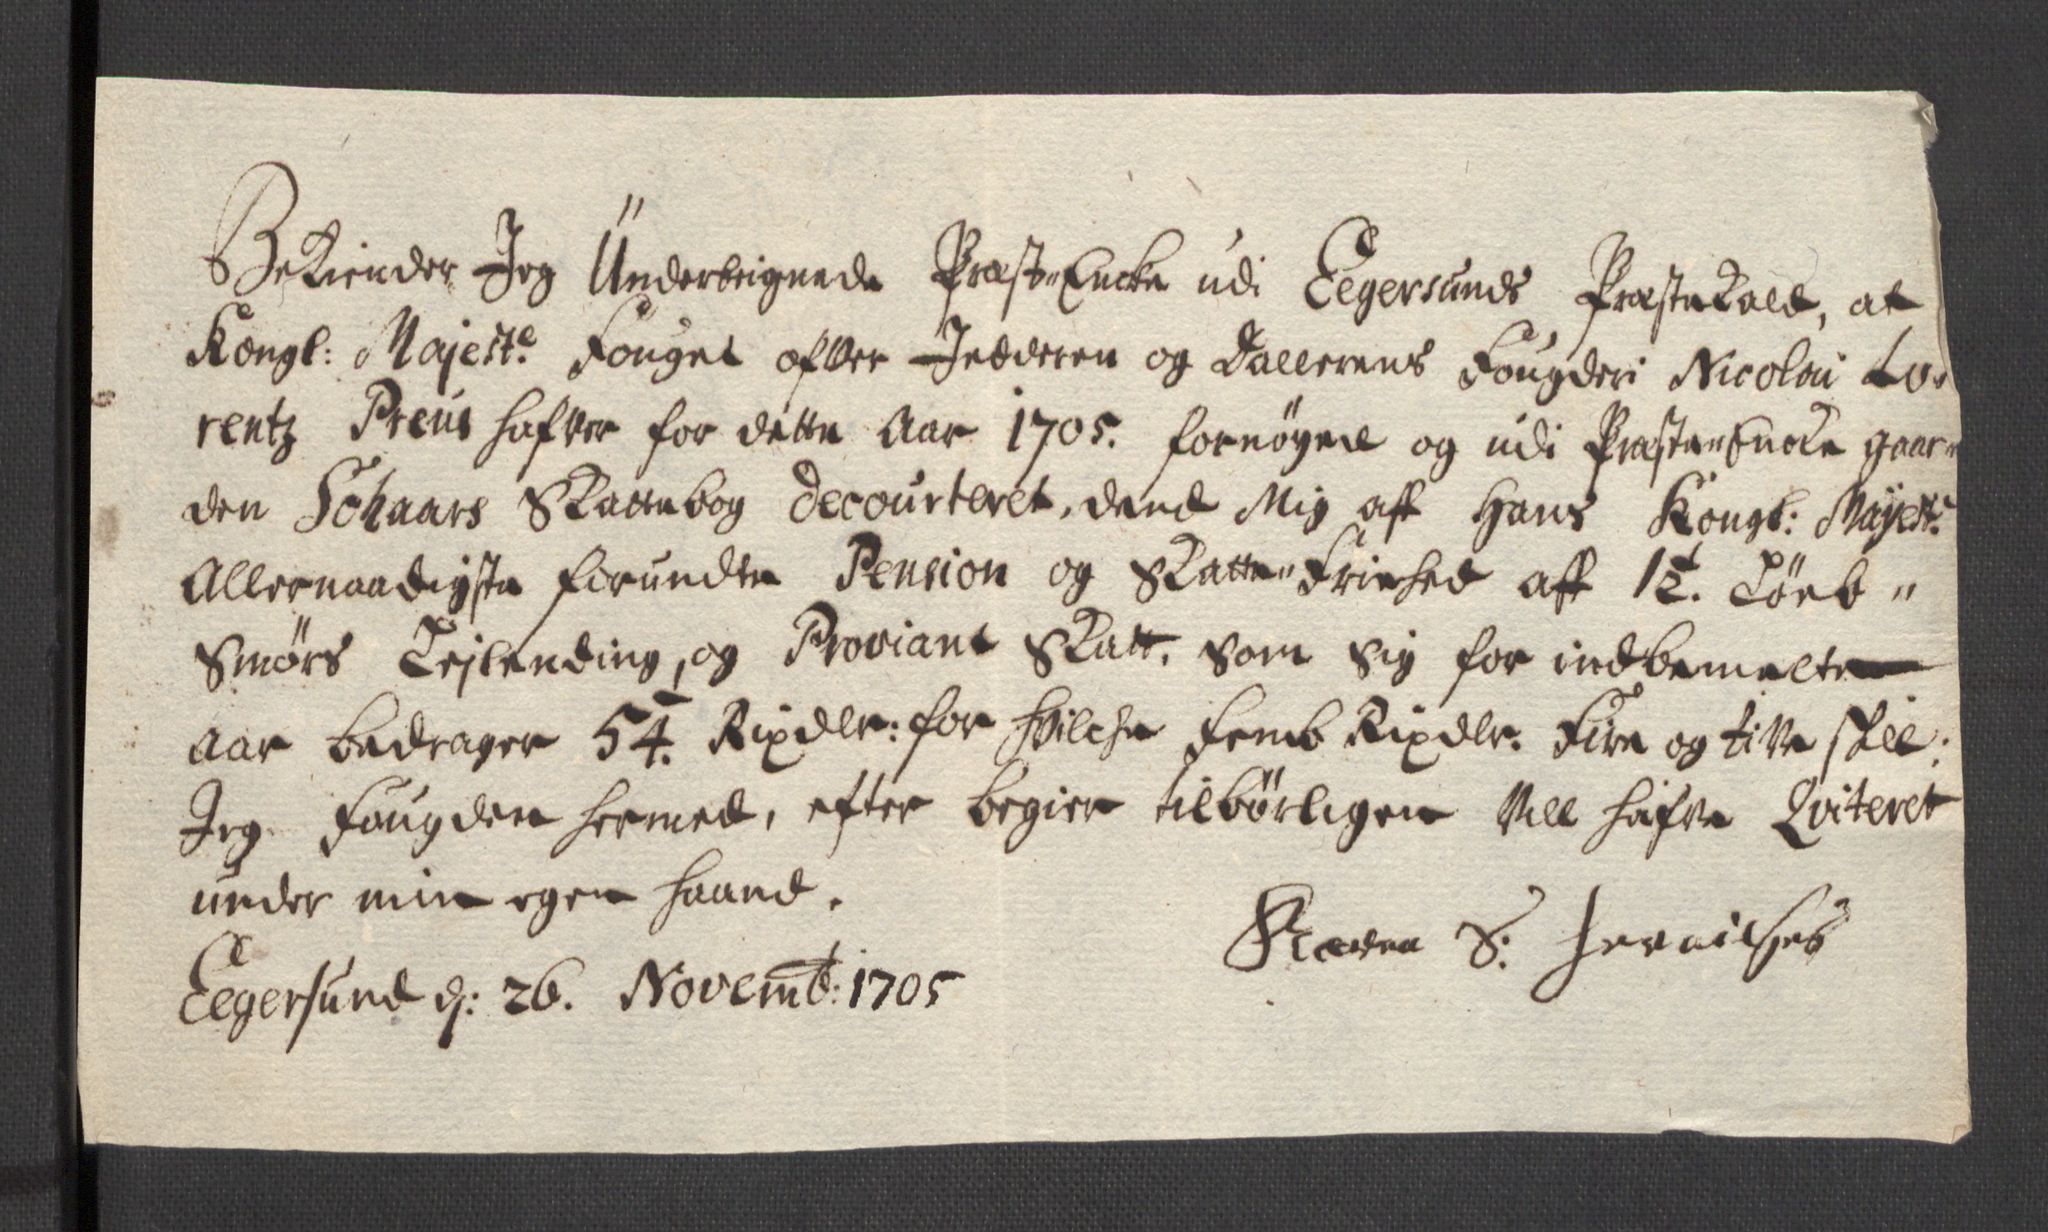 Bekiender Jeg Underteignede Præste Encke udi Eegersunds Præstekald, at
Kongl: Majestt Fouget ofver Jædderen og Dallerens Fougderi Nicolai Lo-
rentz Preus hafver for dette Aar 1705. fornøyed og udi Præste Encke gaar-
den Schaars Skattebog decourteret, dend Mig aff Hans Kongl: Mayestt
Allernaadigste forundte Pension og Skatte-Friehed aff Löeb-
Smörs Leylending, og Proviant Skatt, Som Sig for indbemelte
Aar bedrager Rixdlr: for hvilche Femb Rixdlr. Fire og tive skill:
Jeg Fougden hermed, efter begier tilbörligen Vill hafve Qviteret
under min egen haand.
Eegersund d: 26. Novemb: 1705
S: